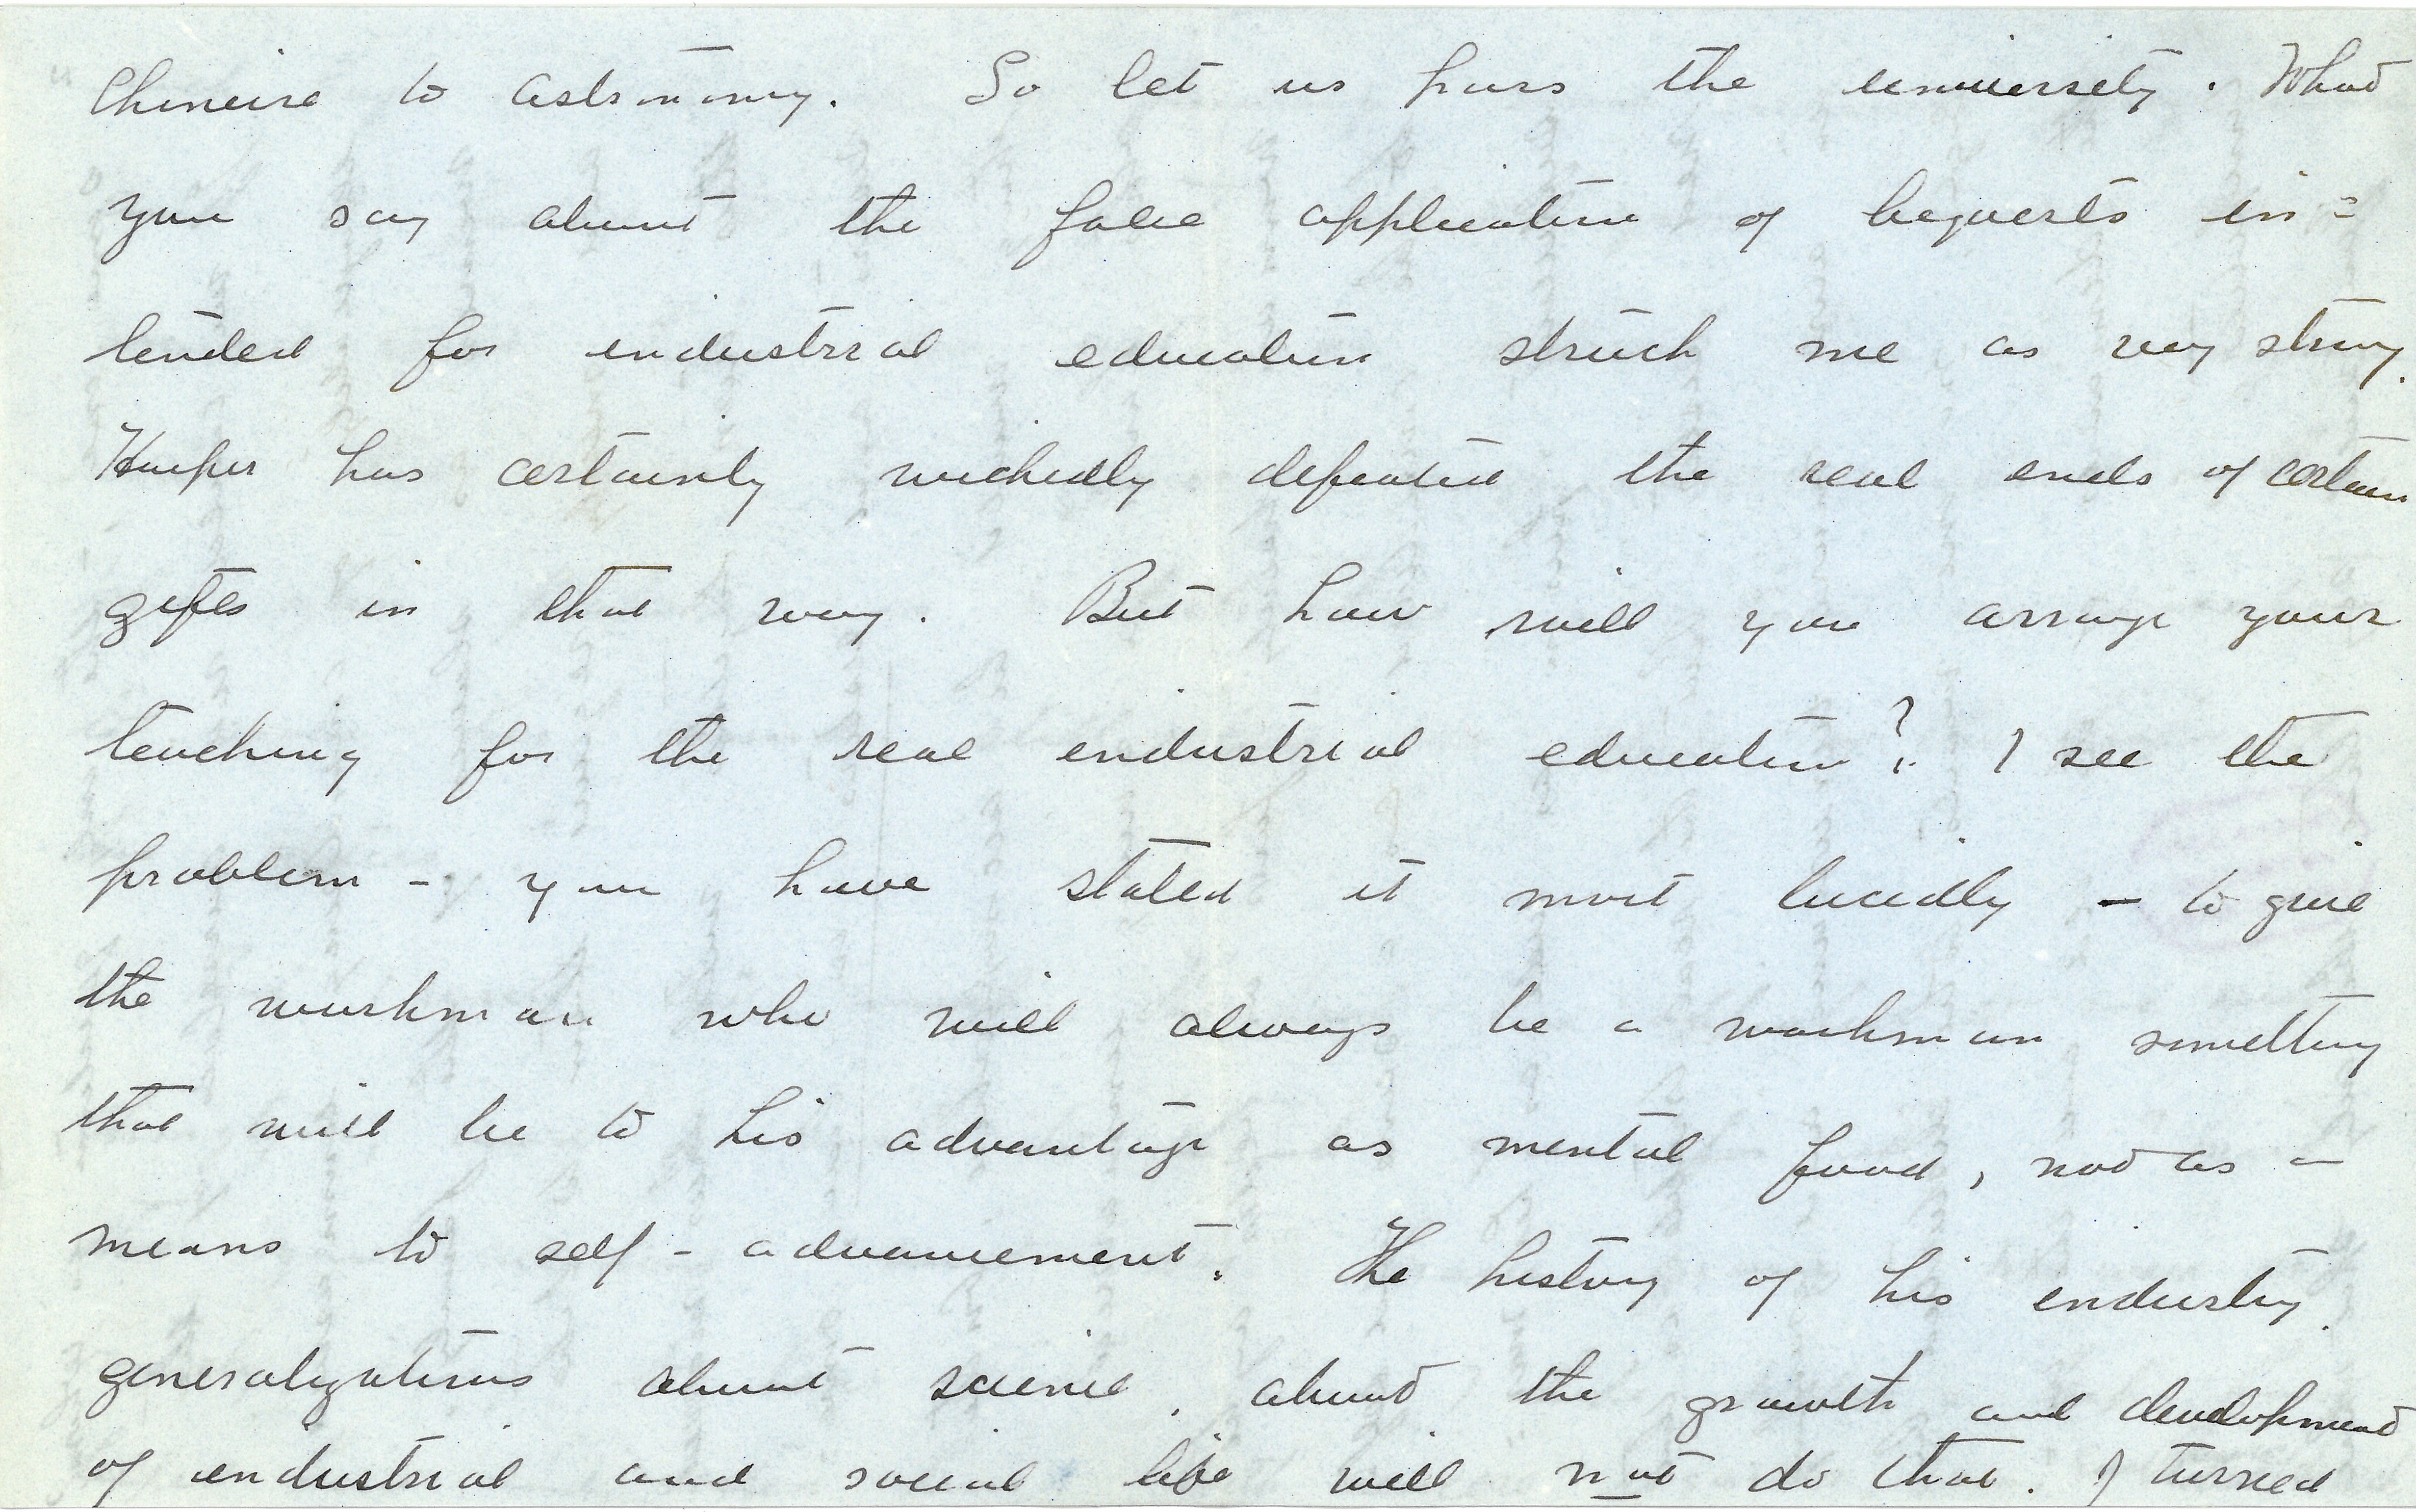 Chinese to astronomy. So let us pass the university. What
you say about the false application of bequests in=
tended for industrial education struck me as very strong.
Harper has certainly wickedly defeated the real ends of certain
gifts in that way. But how will you arrange your
teaching for the real industrial education? I see the
problem - you have stated it most lucidly - to give
the workman who will always be a workman something
that will be to his advantage as mental food, not as a
means to self-advancement. The history of his industry,
generalizations about science, about the growth and development
of industrial and social life will not do that. I turned